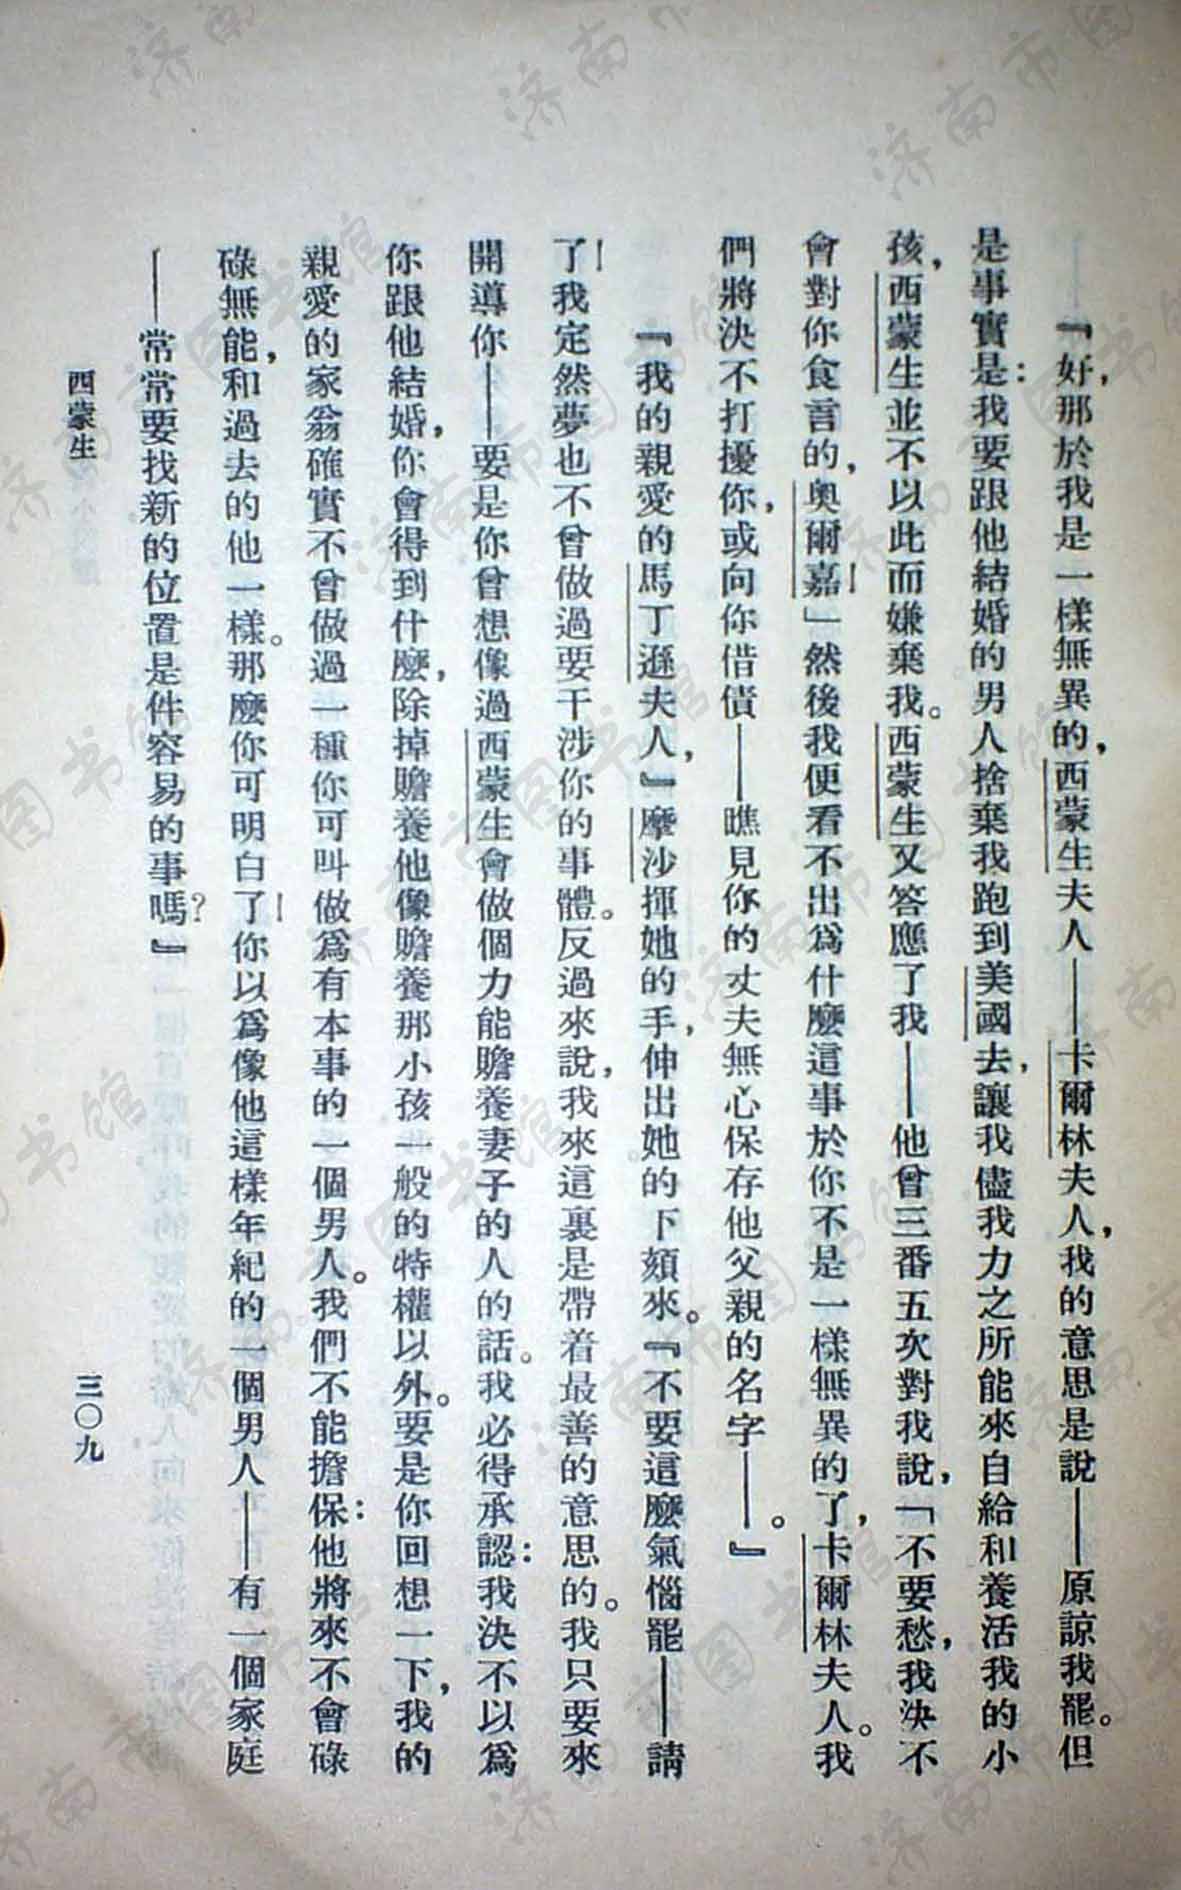 『好，那於我是一樣無異的，西蒙生夫人——卡爾林夫人，我的意思是說——原諒我罷。但
是事實是：我要跟他結婚的男人捨棄我跑到美國去，讓我儘我力之所能來自給和養活我的小
孩，西蒙生並不以此而嫌棄我。西蒙生又答應了我——他曾三番五次對我說，「不要愁，我決不
會對你食言的，奧爾嘉！」然後我便看不出爲什麼這事於你不是一樣無異的了，卡爾林夫人。我
們將決不打擾你，或向你借債——瞧見你的丈夫無心保存他父親的名字——。』
『我的親愛的馬丁遜夫人，』摩沙揮她的手，伸出她的下頦來。『不要這麼氣惱罷——請
了！我定然夢也不曾做過要干涉你的事體。反過來說，我來這裏是帶着最善的意思的。我只要來
開導你——要是你曾想像過西蒙生會做個力能贍養妻子的人的話。我必得承認：我決不以爲
你跟他結婚，你會得到什麼，除掉贍養他像贍養那小孩一般的特權以外。要是你回想一下，我的
親愛的家翁確實不曾做過一種你可叫做爲有本事的一個男人。我們不能擔保：他將來不會碌
碌無能，和過去的他一樣。那麼你可明白了！你以爲像他這樣年紀的一個男人——有一個家庭
——常常要找新的位置是件容易的事嗎？』
西蒙生
三〇九
济南市图书馆